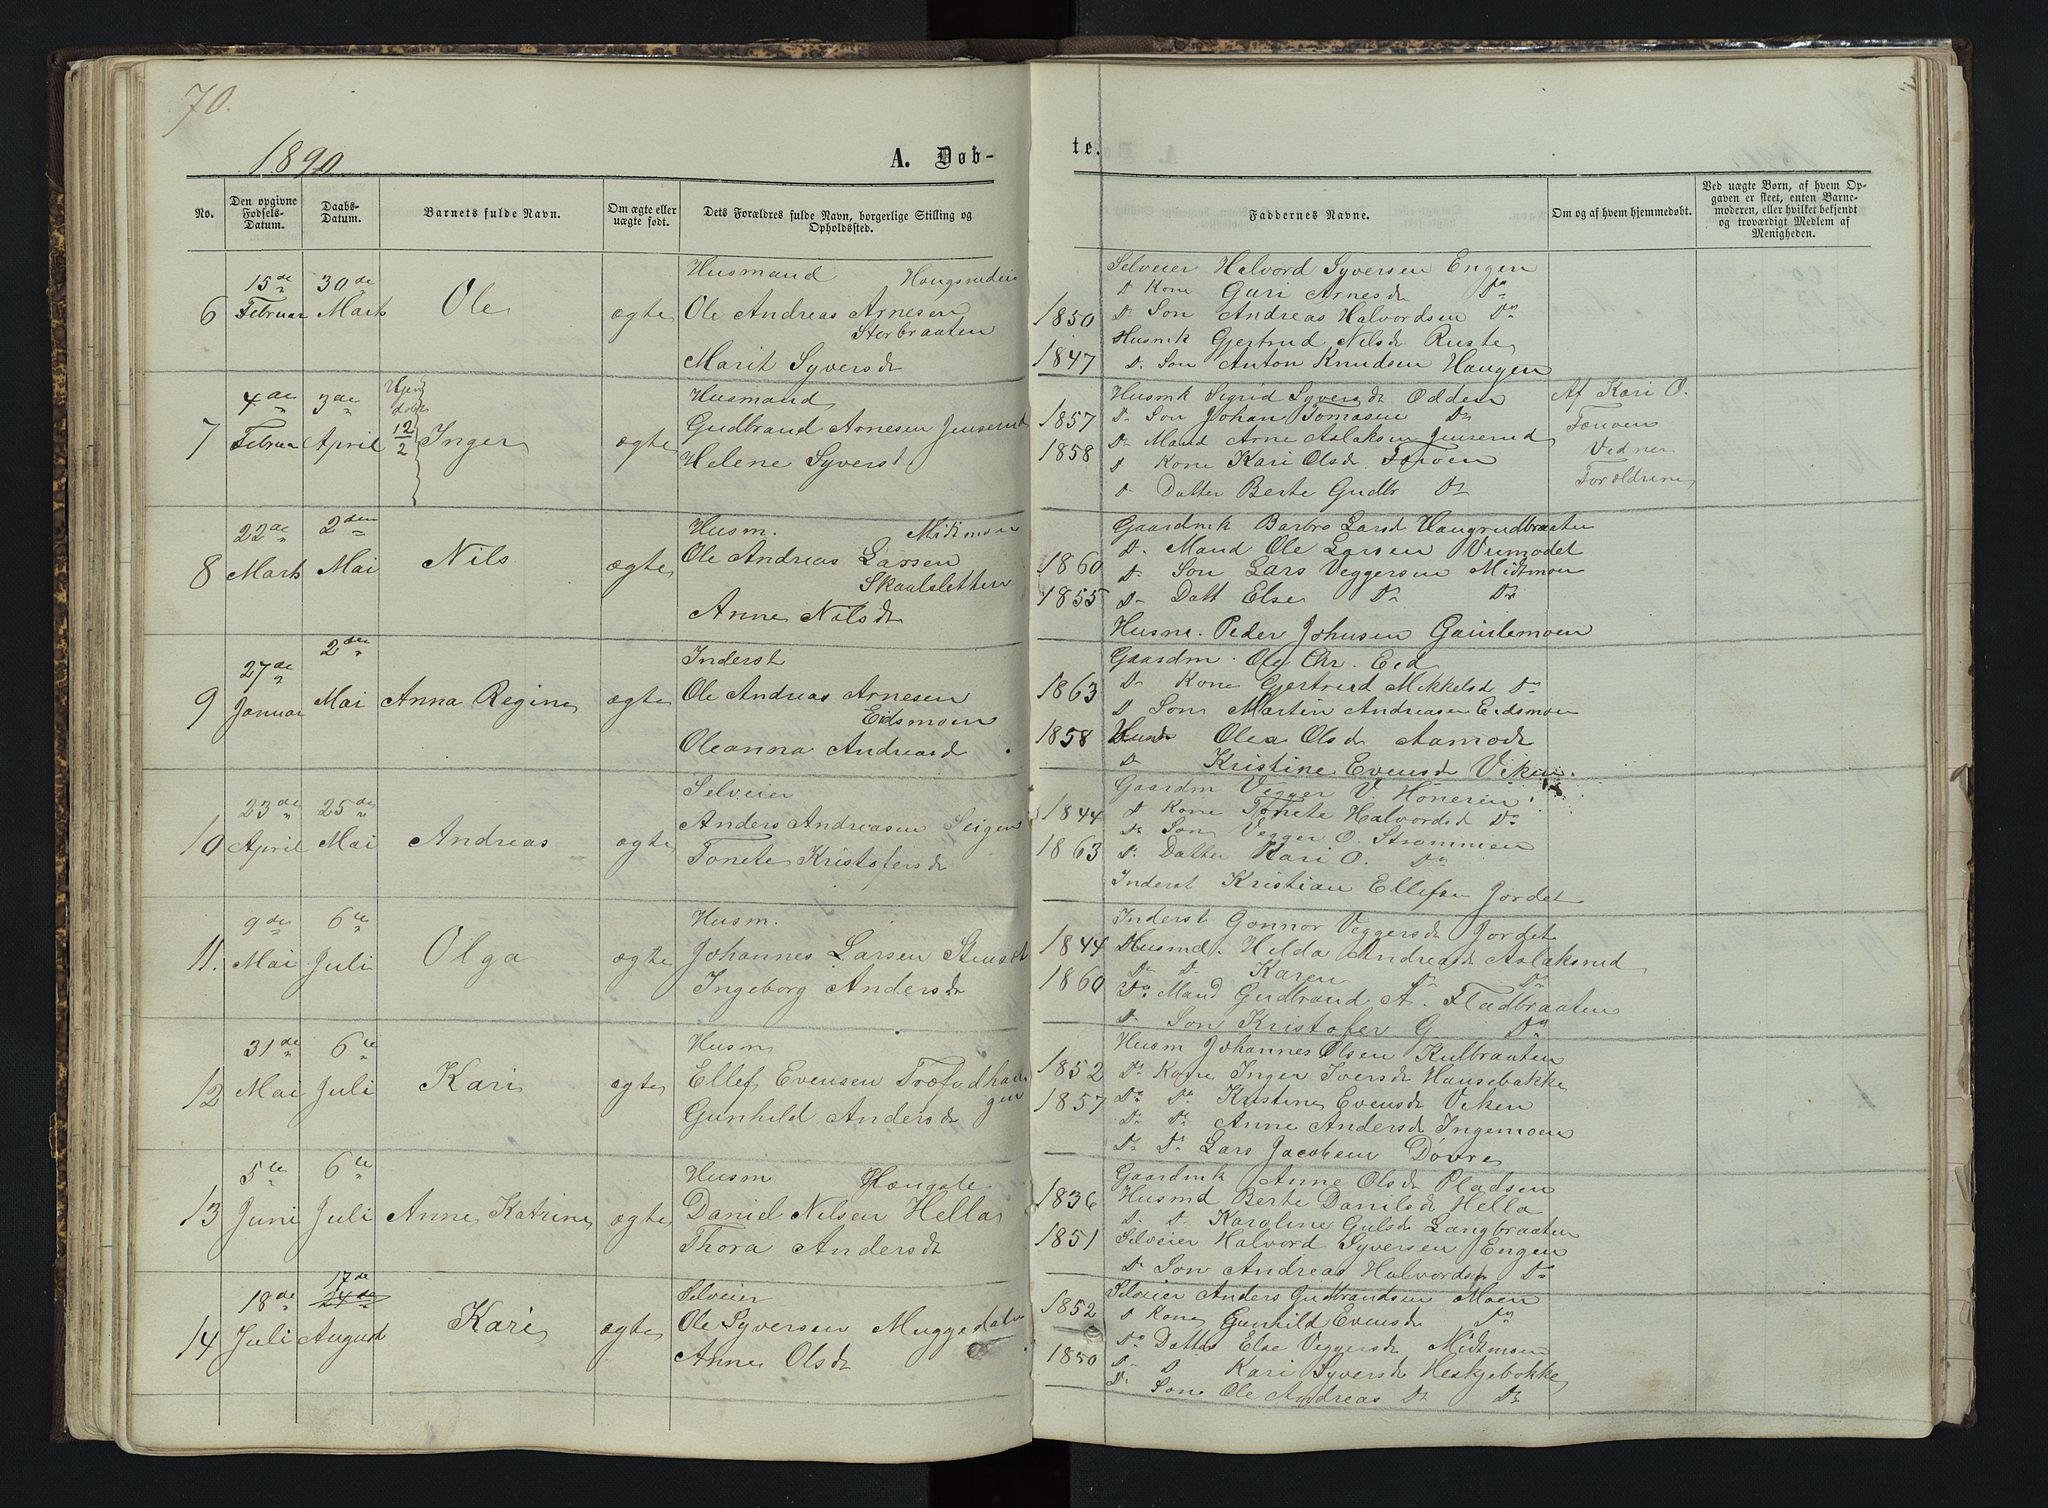 70.
1890
A. Døb-
te.
No.
Den opgivne Fødsels-Datum.
Daabs-Datum.
Barnets fulde Navn.
Om ægte eller uægte født.
Dets Forældres fulde Navn, borgerlige Stilling og Opholdssted.
Faddernes Navne.
Om og af hvem hjemmedøbt.
Ved uægte Børn, af hvem Opgaven er skeet, enten Barnemoderen, eller hvilket bekjendt og troværdigt Medlem af Menigheden.
6
15de Februar
30de Marts
Ole
ægte
Husmand
Ole Andreas Arnesen
Storbraaten
Marit Syversdt
1850
1847
Selveier Halvord Syversen Engen
Do Kone Guri Arnesdt Do
Do Son Andreas Halvordsen Do
Husmk Gjertrud Nilsdt Ruste
Do Son Anton Knudsen Haugen
7
4de Februar
3de April
Hjemdøbt 12/2
Inger
ægte
Husmand
Gudbrand Arnesen Juserud
Helene Syversdt
1857
1858
Husmk Sigrid Syversdt Odden
Do Son Johan Tomasen Do
Do Mand Arne Aslaksen Juserud
Do Kone Kari Olsdt
Do Datter Berte Gudbr Do
Af Kari O.
Vedner
Foreldrene
8
22de Marts
2den Mai
Nils
ægte
Husm. Midtmoen
Ole Andreas Larsen
Skaalsletten
Anne Nilsdt
1860
1855
Gaardmk Barbro Larsd Haugrudbraaten
Do Mand Ole Larsen
Do Son Lars Veggersen Midtmoen
Do Datt Else Do Do
Husm. Peder Johnsen
9
27de Januar
2den Mai
Anna Regine
ægte
Inderst
Ole Andreas Arnesen
Eidsmoen
Oleanna Andreasd
1863
1858
Gaardm. Ole Chr. Eid
Do Kone Gjertrud Mikkelsd Do
Do Son Martin Andreasen Eidsmoen
Olea Olsd Aamodt
Do Kristine Evensdt Viken.
10
23de April
25de Mai
Andreas
ægte
Selveier
Anders Andreasen
Tonete Kristofersdt
1844
1863
Gaardm Vegger V. Hōneren
Do Kone Tonete Halvordsd Do
Do Son Vegger O. Strommen
Do Datter Kari O. Do
Inderst Kristian Ellefsen Jordet
11.
9de Mai
6te Juli
Olga
ægte
Husm.
Johannes Larsen
Ingeborg Andersdt
1844
1860
Inderst Gonnor Veggersdt Jordet
Husmd. Hilda Andreasd Aslaksrud
Do Do Karen Do Do
Do Mand Gudbrand A. Fladbraaten
Do Son Kristofer G Do
12
31de Mai
6te Juli
Kari
ægte
Husm
Ellef Evensen
Gunhild Andersdt
1852
1857
Husm Johannes Olsen Kulbraaten
Do Kone Inger Iversdt Hansebakke
Do Do Kristine Evensdt Viken
Do Do Anne Andersdt Ingemoen
Do Do Lars Jacobsen Dovre
13
5te Juni
6te Juli
Anne Katrine
ægte
Husm
Daniel Nilsen Hella
Thora Andersdt
1836
1851
Gaardmk Anne Olsdt Pladsen
Husmd Berte Danilsdt Hella
Do Do Karoline Gulsdt Langbraaten
Selveier Halvord Syversen Engen
Do Son Andreas Halvordsen Do
14
18de Juli
17de 24de August
Kari
ægte
Selveier
Ole Syversen Muggedalen
Anne Olsdt
1852
1850
Selveier Anders Gudbrandsen Moen
Do Kone Gunhild Evensdt Do
Do Datter Else Veggersdt Midtmoen
Do Do Kari Syversdt Heskjebokke
Do Son Ole Andreas Do Do